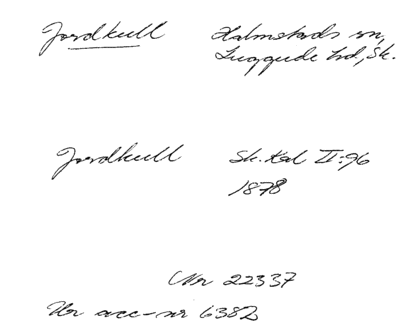 Jordkull Halmstads sn,
Luggude hd, Sk.
Jordkull Sk. Kal II:96
1878
Nr 22337
Ur acc-nr 6382